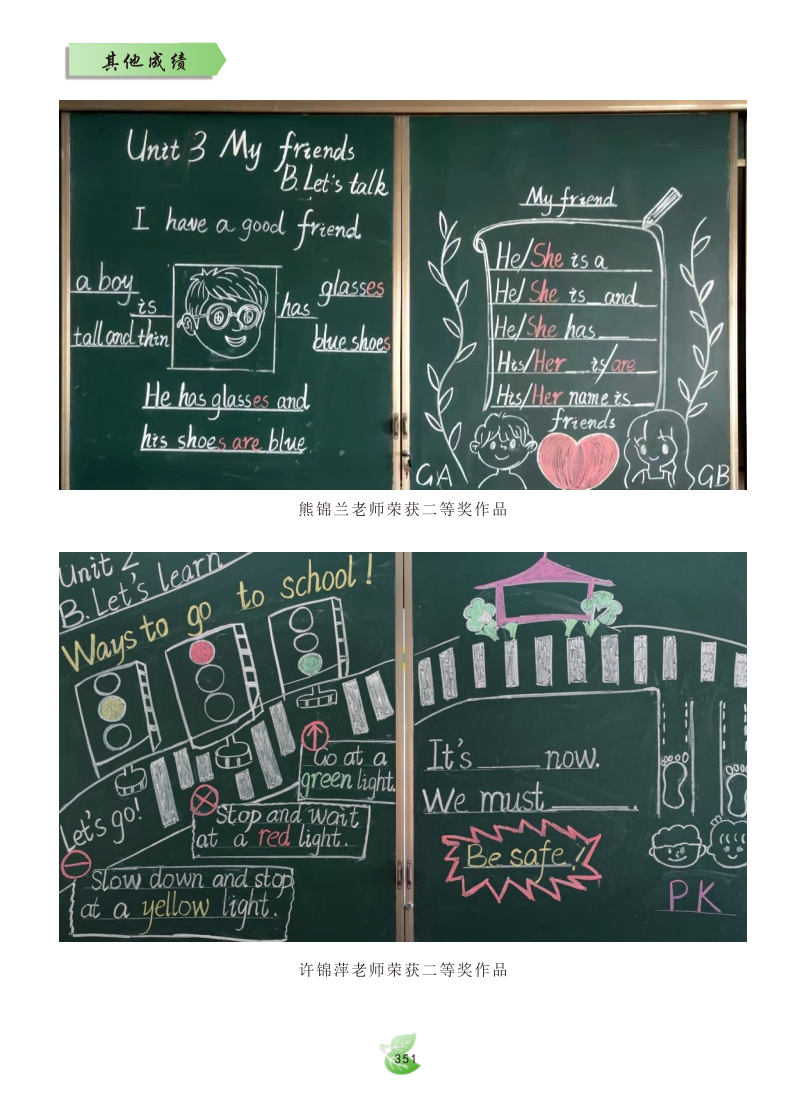 其他成绩
Unit 3 My friends
B. Let's talk
I have a good friend
a boy
is
tall and thin
has
glasses
blue shoes
He has glasses and
his shoes are blue.
My friend
He/She is a
He/She is and
He/She has
His/Her is/are
His/Her name is
friends
GA
GB
熊锦兰老师荣获二等奖作品
Unit 2
B. Let's learn
Ways to go to school!
Go at a
green light.
Stop and wait
at a red light.
Let's go!
Slow down and stop
at a yellow light.
It's ______ now.
We must ________.
Be safe!
PK
许锦萍老师荣获二等奖作品
351